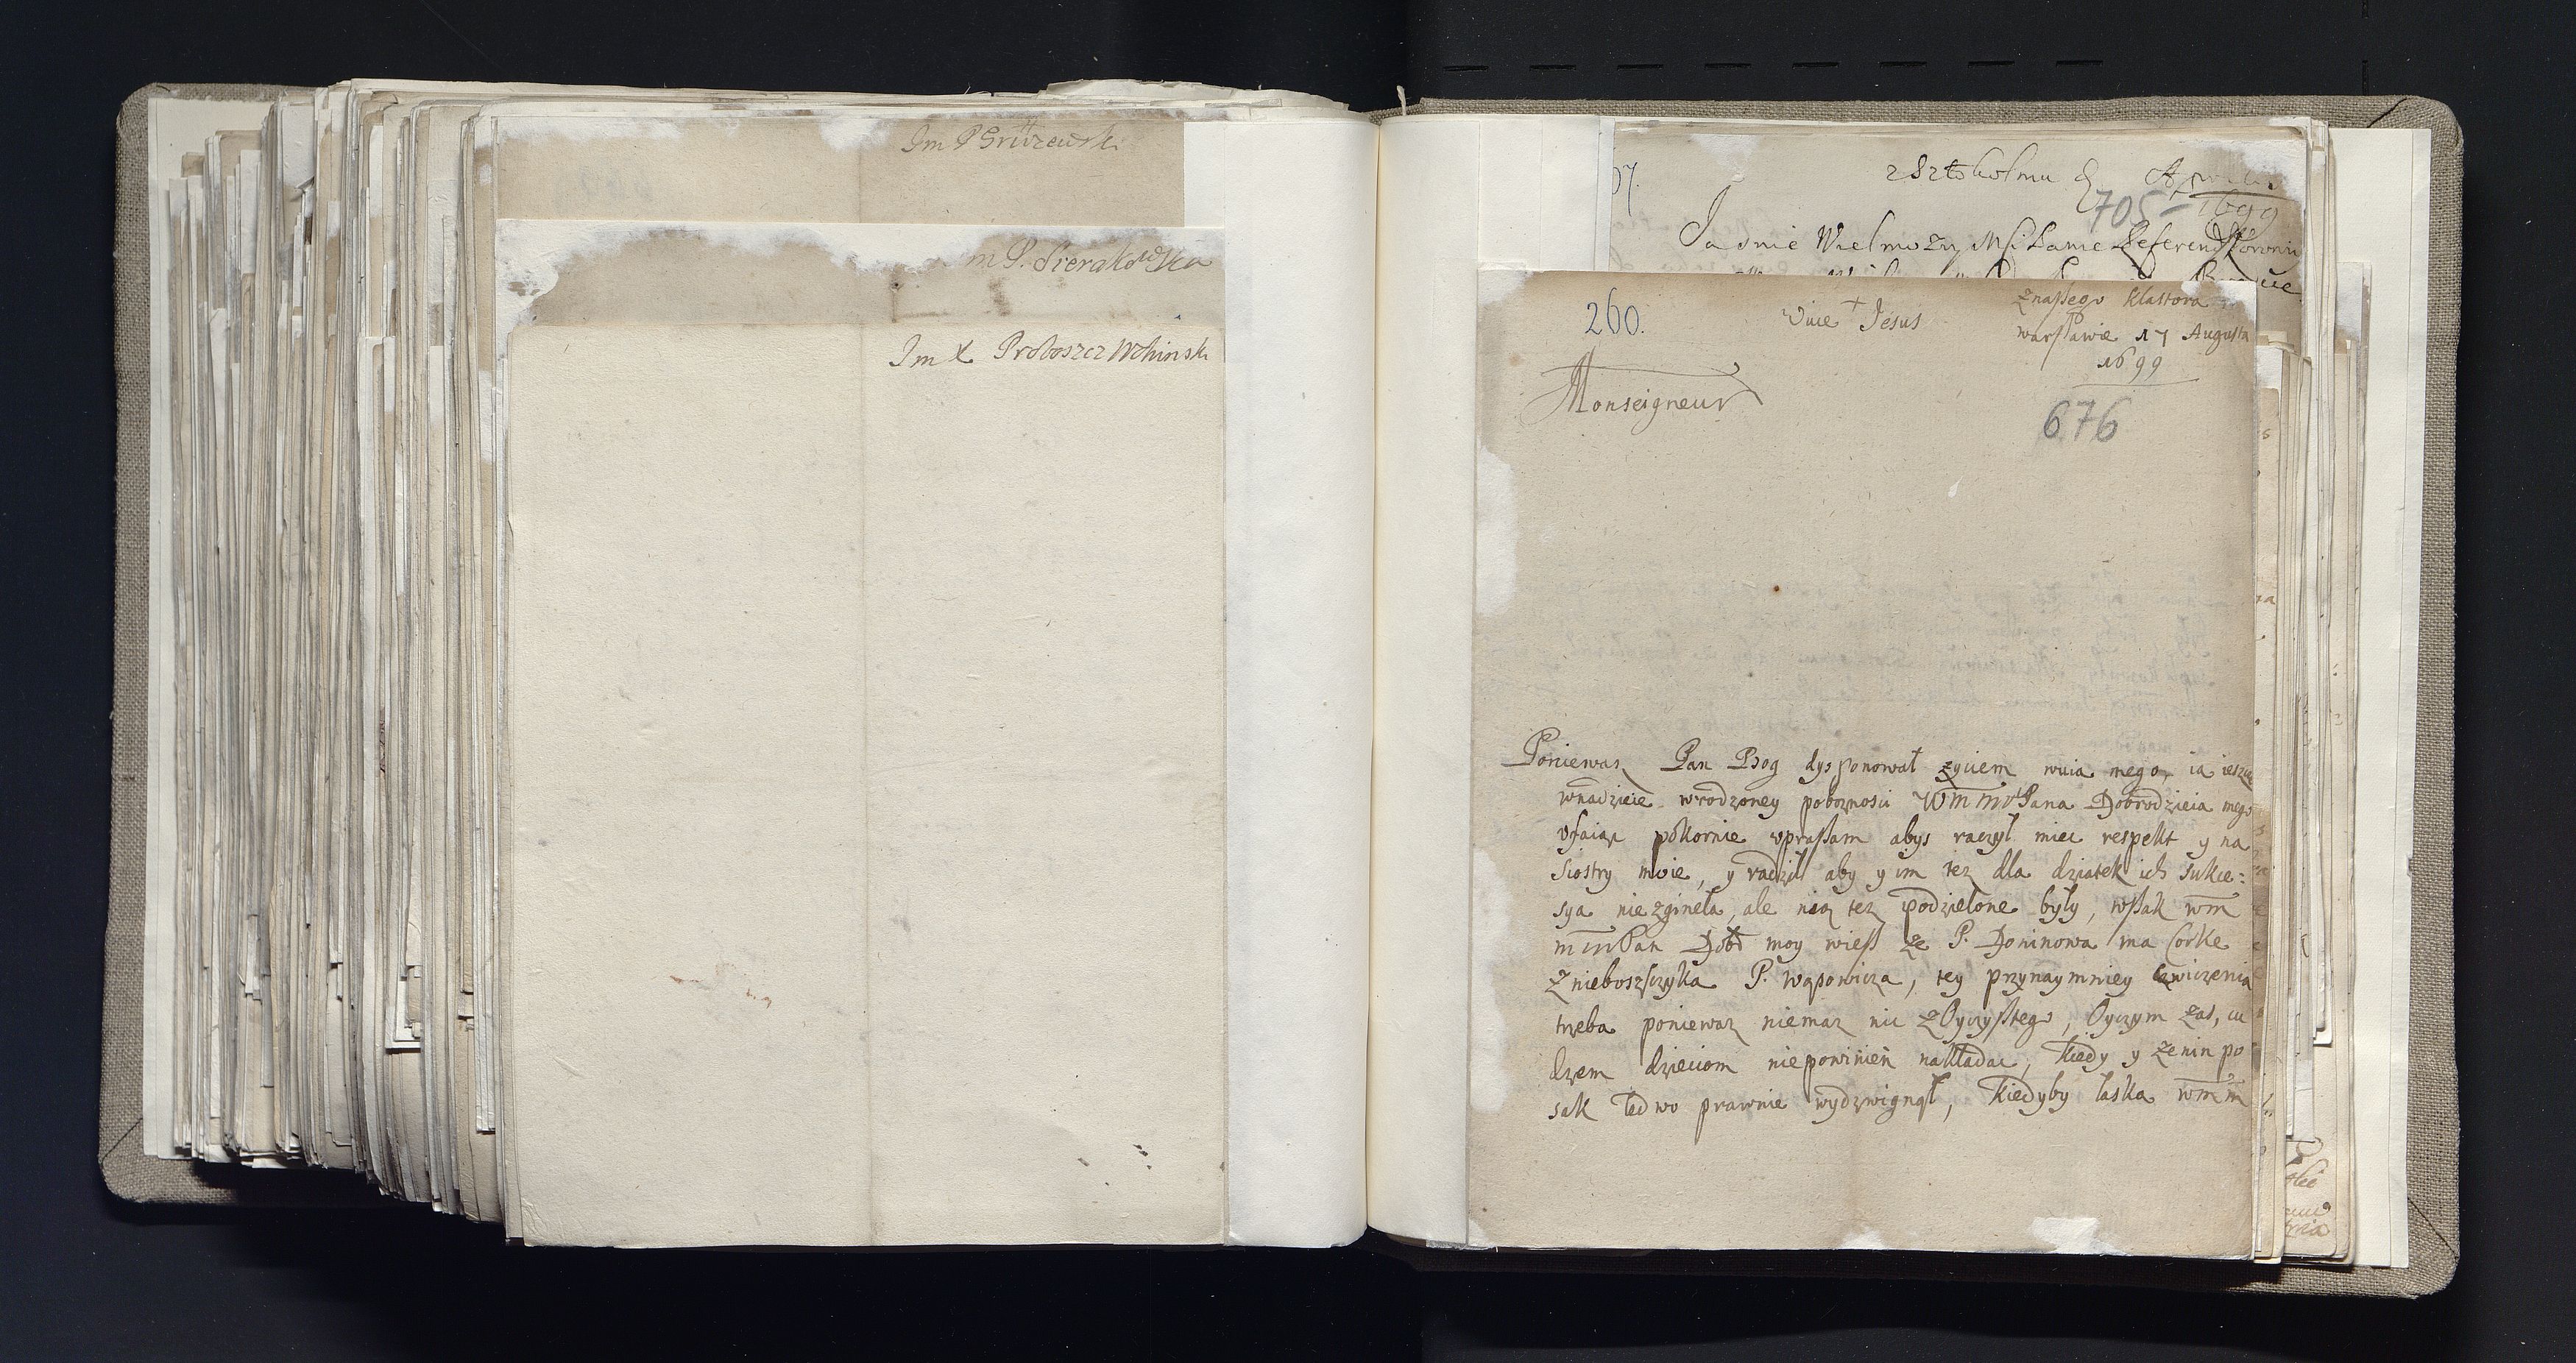 Im P Gruzewski
m P. Sierakowska
Im X Proboszcz Wchinsk
07.
zSztokolmu d Aprilis
705- 1699
Jasnie Wielmozny Msci Panie Referend Koronn
260.
Vive + Jesus
znaßego klastora
warßawie 17 Augusta
1699
Monseigneur
676
Poniewaz Pan Bog dysponował zyciem wuia mego, ia iescze
wnadzieie wrodzoney poboznosci WmmPana Dobrodzieia mego
ufaiąc pokornie upraßam abys raczył miec respekt y na
siostry moie, y radził aby y im tez dla dziatek ich sukce:
sya niezgineła, ale niąz tez podzielone były, wßak wm
mmPan Dobr moy wieß ze P. Doninowa ma Corke
z nieboszsczyka P. Wąsowicza, tey przynaymniey cwiczenia
trzeba poniewaz niemaz nic zOyczystego, Oyczym zas, cu
dzem dzieciom niepowinien nakładac, kiedy y ze nin po
sak ledwo prawnie wydzwignął, kiedyby łaska wmm